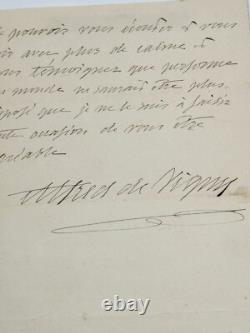 pouvoir vous écouter à vous
avec plus de calme &
vous témoigner que personne
au monde ne saurait être plus
disposé que je ne le suis à saisir
cette occasion de vous être
agréable
Alfred de Vigny
© ebay